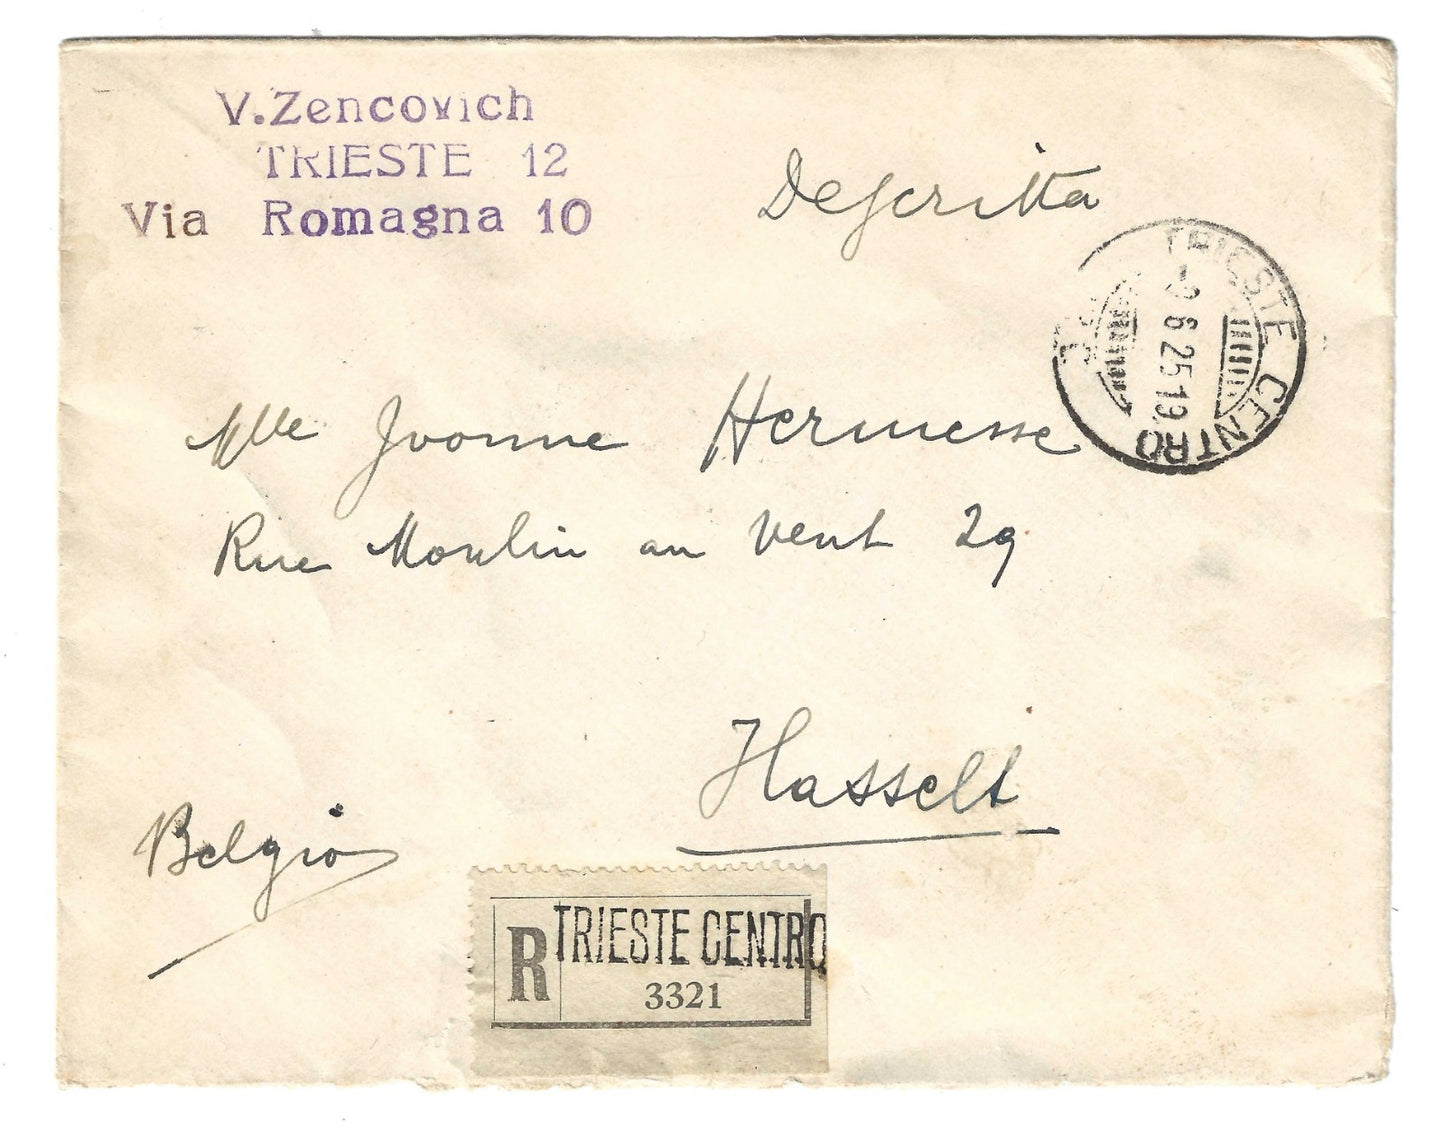 V. Zencovich
TRIESTE 12
Via Romagna 10
Descritta
TRIESTE CENTRO
6 25 19
Mlle Jvonne Hermesse
Rue Moulin au vent 29
Hasselt
Belgio
R TRIESTE CENTRO
3321